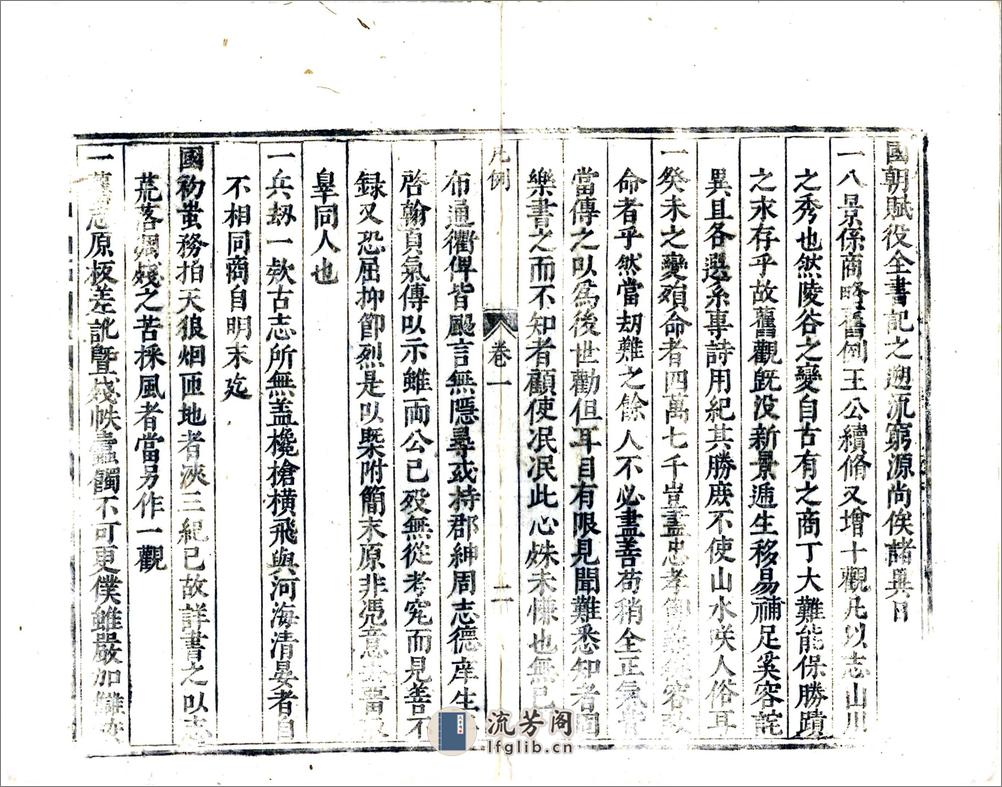 國朝賦役全書記之遡流窮源尚俟諸異日
一八景係商略舊例王公續修又增十觀凡以志山川
之秀也然陵谷之變自古有之商丁大難能保勝蹟
之求存乎故舊觀旣没新景逓生移易補足奚容詫
異且各選系專詩用紀其勝庻不使山水咲人俗耳
一癸未之變殞命者四萬七千豈盡忠孝
命者乎然當刼難之餘人不必盡善苟稍全正氣
當傳之以爲後世勸但耳目有限見聞難悉知者固
樂書之而不知者顧使泯泯此心殊未慊也無已
凡例
卷一
二
布通衢俾皆颺言無隱尋或持郡紳周志德庠生
啓翰貟氣傳以示雖両公已殁無從考究而見善不
録又恐屈抑節烈是以槩附簡末原非凴意
辠同人也
一兵刼一欵古志所無盖欃槍横飛與河海清晏者自
不相同商自明末迄
國初蚩務拍天狼烟匝地者浹三紀已故詳書之以志
荒落凋殘之苦採風者當另作一觀
一舊志原板差訛曁殘帙蠧蠋不可更僕雖嚴加讎
流芳阁
lfglib.cn